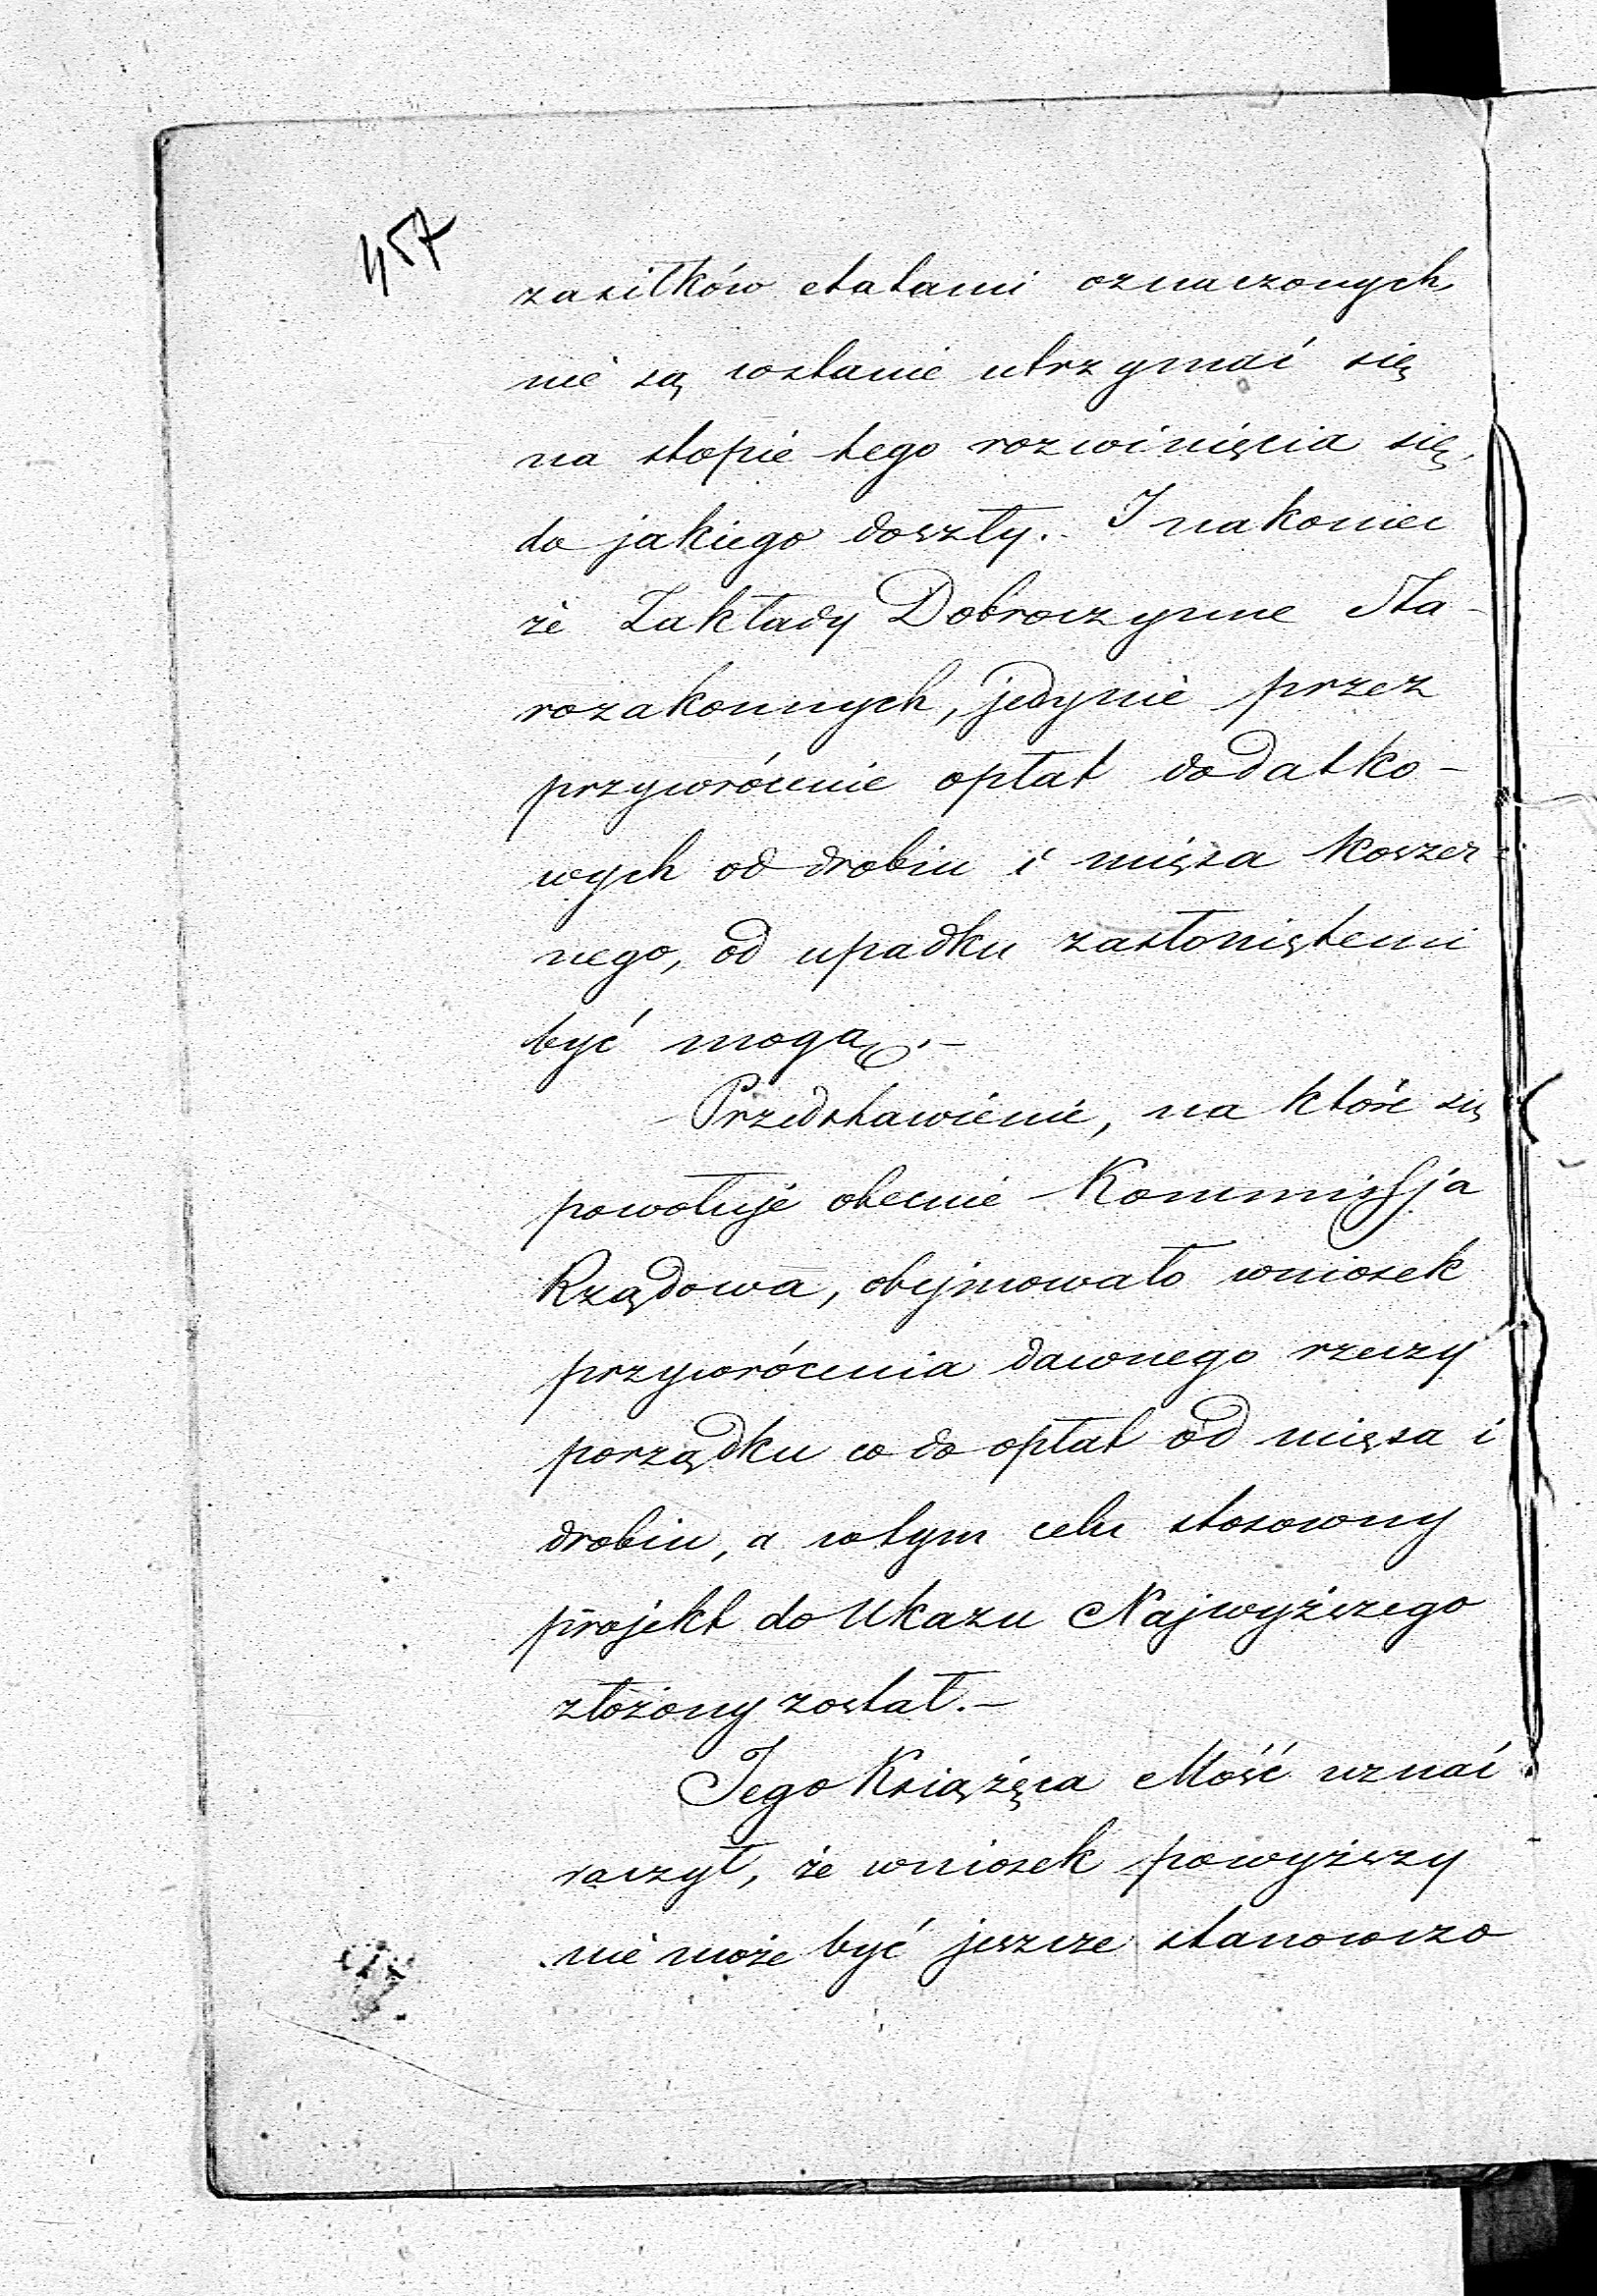 457
zasiłków etatami oznaczonych,
nie są wstanie utrzymać się
na stopie tego rozwinięcia się,
do jakiego doszły. I nakoniec
że Zakłady Dobroczynne Sta-
rozakonnych, jedynie przez
przywrócenie opłat dodatko-
wych od drobiu i mięsa koszer-
nego, od upadku zasłoniętemi
być mogą.—
Przedstawienie, na które się
powołuje obecnie Kommissja
Rządowa, obejmowało wniosek
przywrócenia dawnego rzeczy
porządku co do opłat od mięsa i
drobiu, a wtym celu stosowny
projekt do Ukazu Najwyższego
złożony został.—
Jego Książęca Mość uznać
raczył, że wniosek powyższy
nie może być jeszcze stanowczo